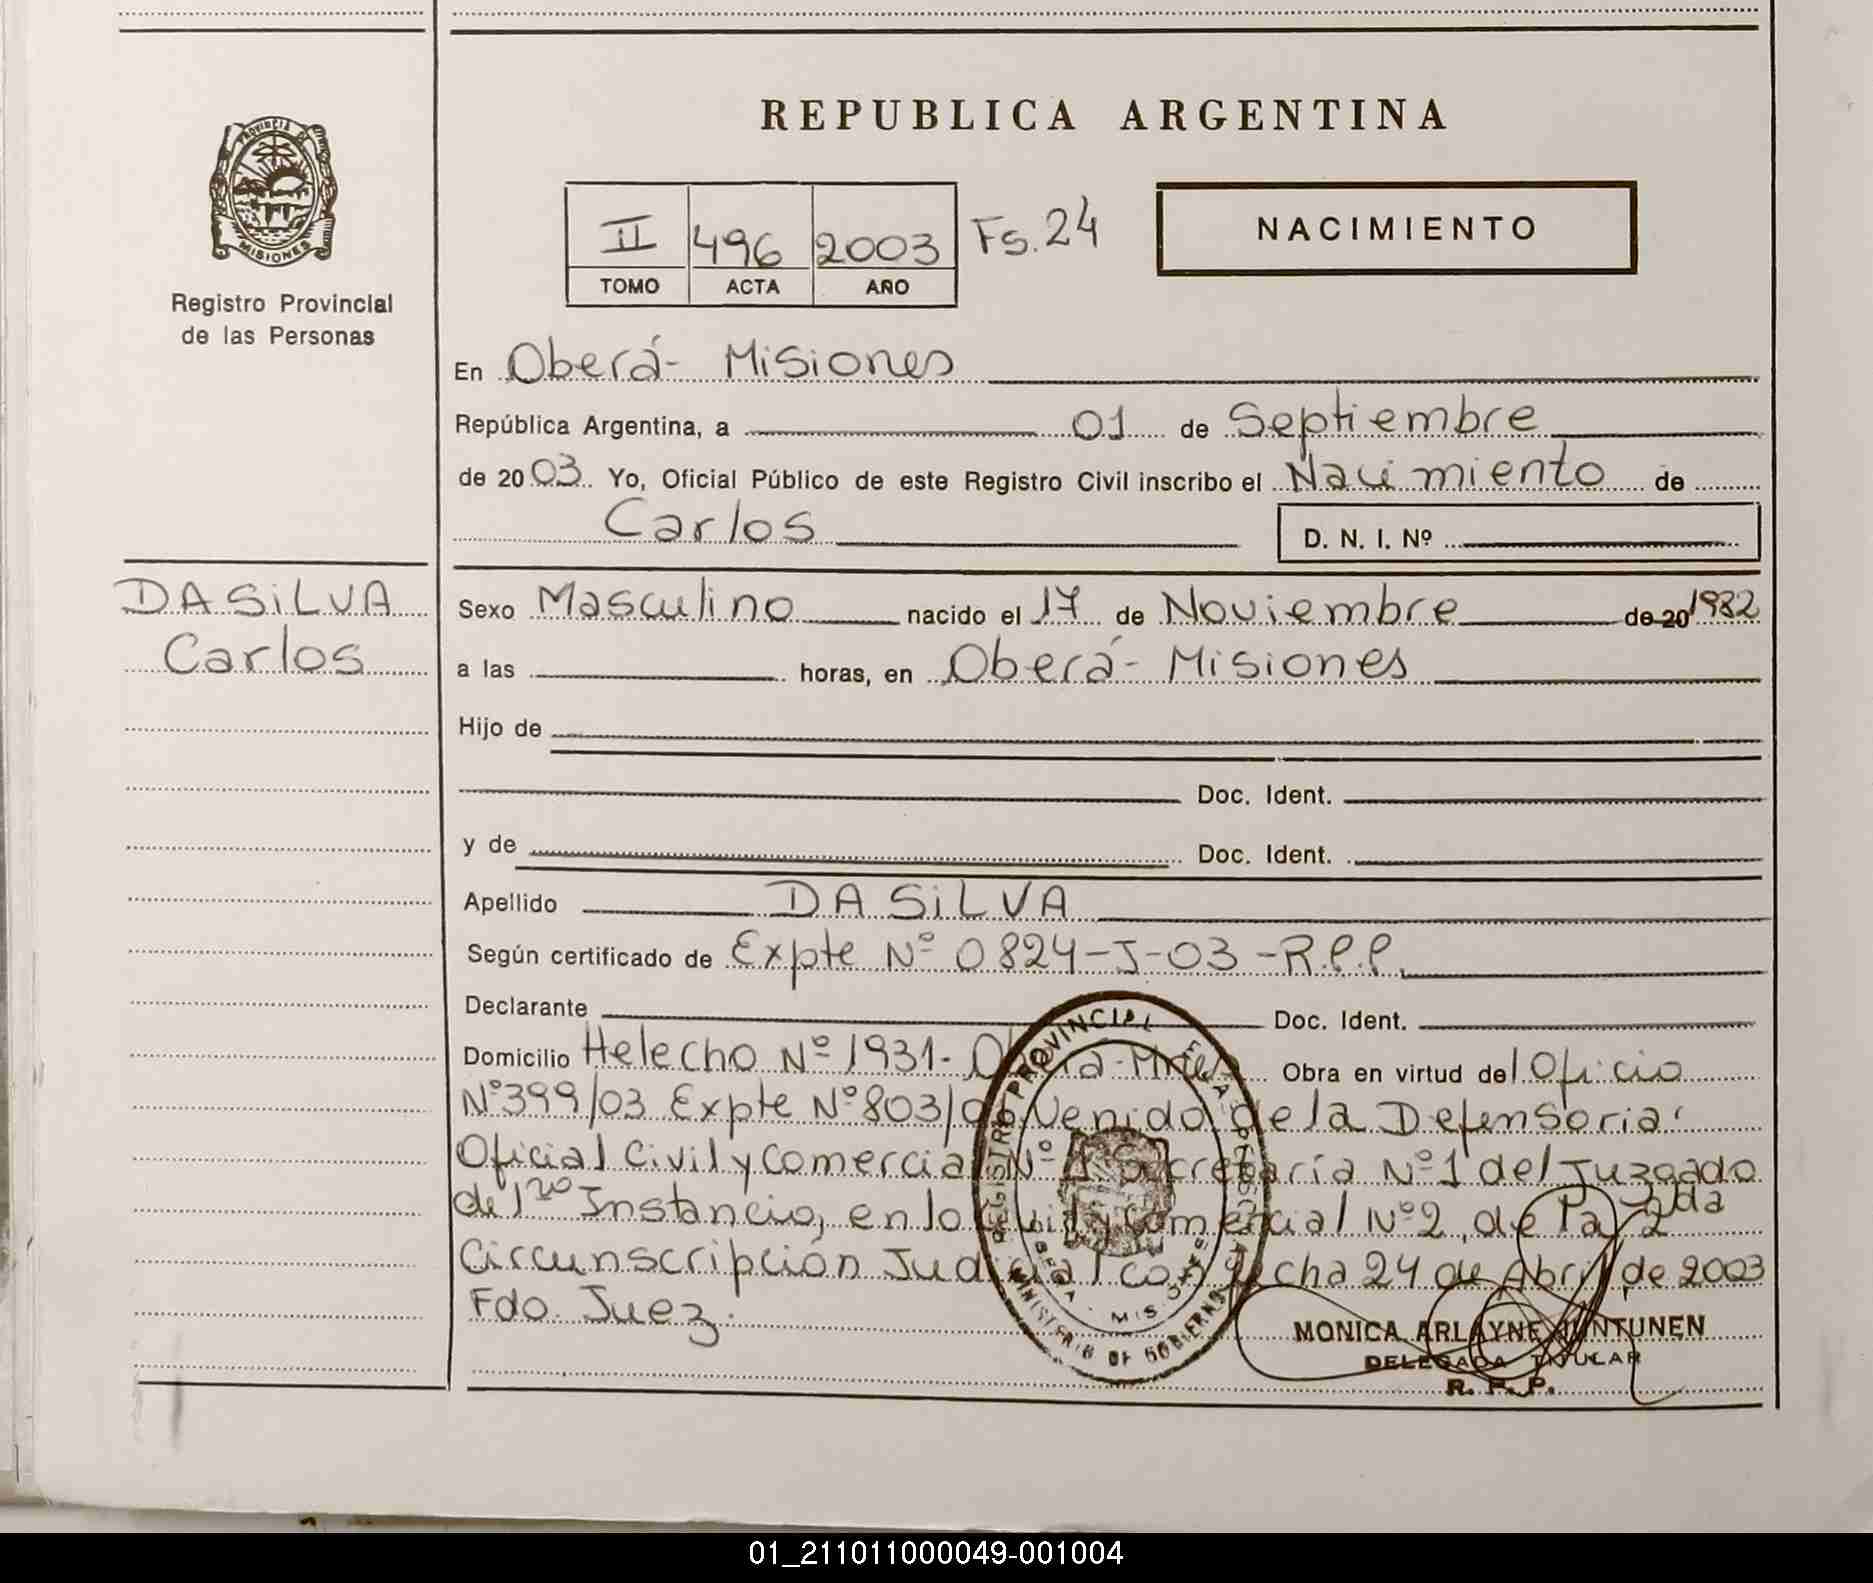 REPUBLICA ARGENTINA
PROVINCIA DE
MISIONES
Registro Provincial
de las Personas
II 496 2003 Fs. 24
TOMO ACTA AÑO
NACIMIENTO
En Oberá - Misiones
República Argentina, a 01 de Septiembre
de 2003. Yo, Oficial Público de este Registro Civil inscribo el Nacimiento de
Carlos D. N. I. Nº
DA SiLVA
Carlos
Sexo Masculino nacido el 17 de Noviembre de 20 1982
a las horas, en Oberá - Misiones
Hijo de
Doc. Ident.
y de Doc. Ident.
Apellido DA SiLVA
Según certificado de Expte Nº 0824-J-03-R.P.P.
Declarante Doc. Ident.
Domicilio Helecho Nº 1931 - Oberá - Mnes Obra en virtud del Oficio
Nº 399/03 Expte Nº 803/ Venido de la Defensoria
Oficial Civil y Comercial Nº 1 Secretaría Nº 1 del Juzgado
de 1ra Instancia, en lo Civil y Comercial Nº 2, de la 2da
Circunscripción Judicial con fecha 24 de Abril de 2003
Fdo. Juez.
REGISTRO PROVINCIAL DE LAS PERSONAS
MINISTERIO DE GOBIERNO
OBERA - MISIONES
MONICA ARLAYNE JUNTUNEN
DELEGADA TITULAR
R. P. P.
01_211011000049-001004